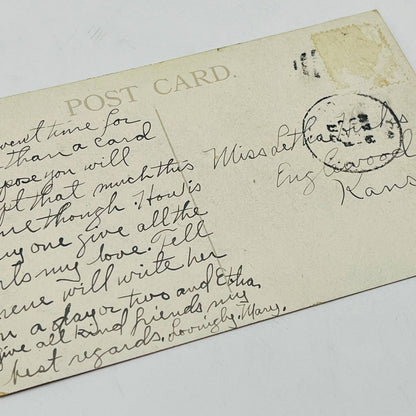 POST CARD.
time for
than a card
you will
that much this
though. How is
one give all the
my love. Tell
will write her
a day or two and Etha
give all kind friends my
best regards. Lovingly, Mary.
Miss Letha
Englewood
Kans